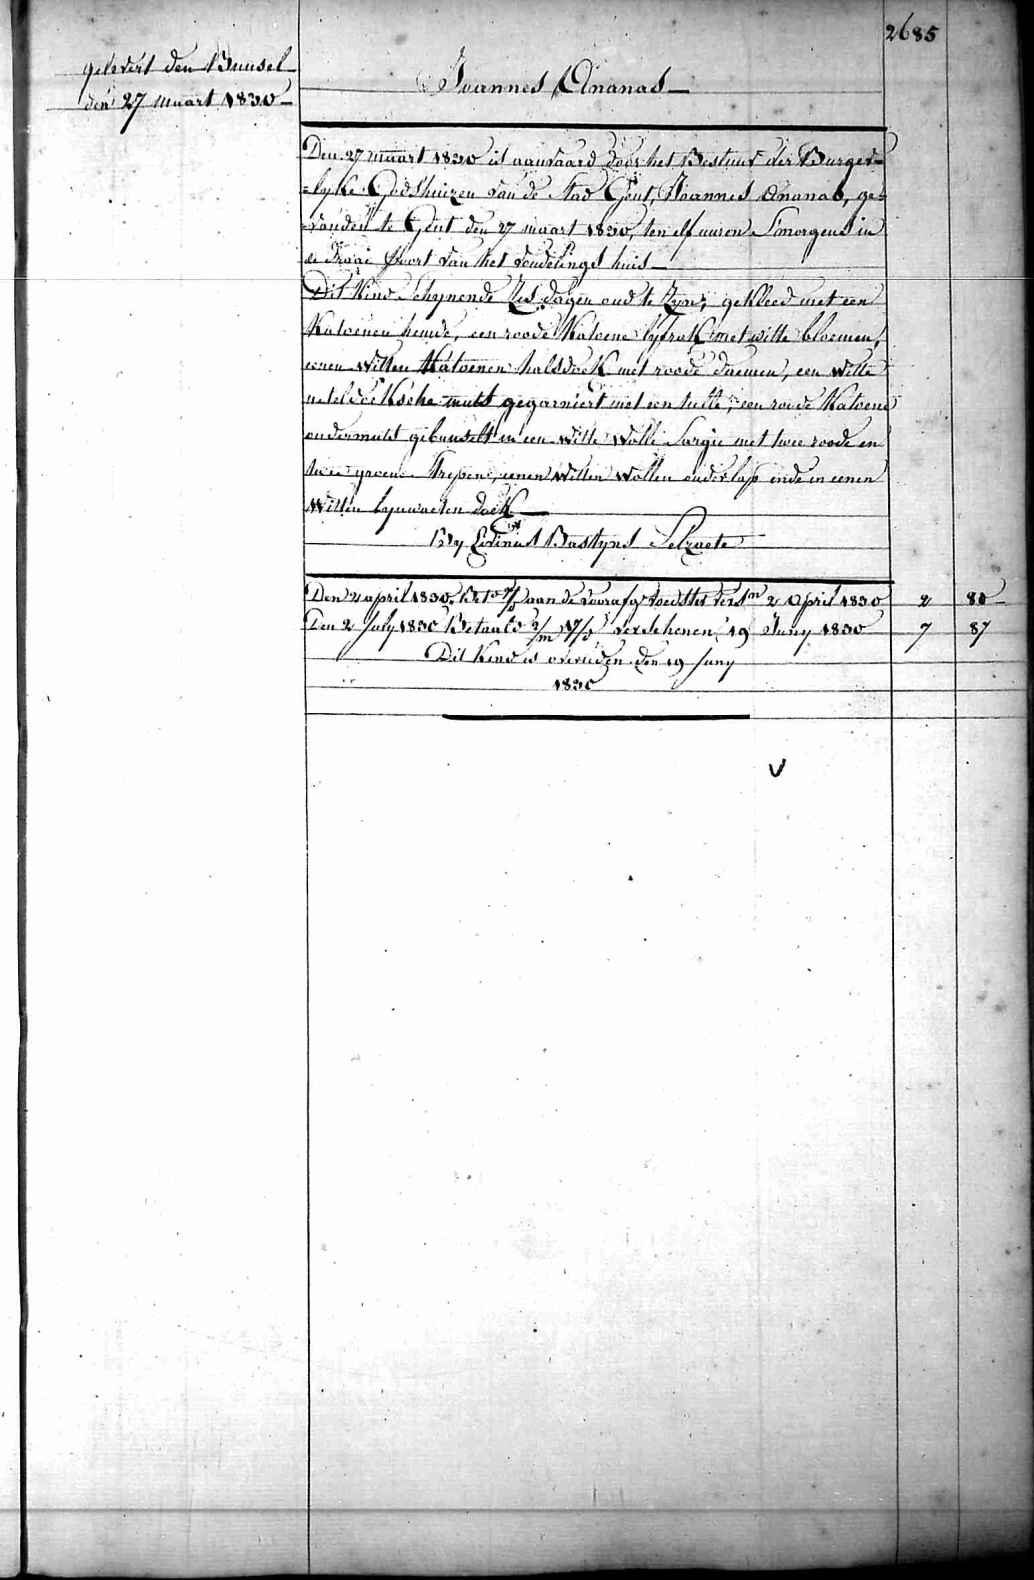 2685
gelevert den Bunsel
den 27 maart 1830
Joannes Ananas
Den 27 maart 1830 is aanvaard door het Bestuur der Burger=
=lyke Godshuizen van de Stad Gent, Joannes Ananas, ge=
=vonden te Gent den 27 maart 1830, ten elf uuren Smorgens in
de draai Poort van het vondelings huis
Dit Kind Schynende Zes dagen oud te Zyn; gekleed met een
Katoenen hemde, een roode Katoene lyfrok met witte bloemen,
eenen Witten Katoenen halsdoek met roode daemen, een Witte
neteldoeksche muts gegarniert met een tulle, een roode Katoene
ondermuts gebunselt in een Witte Wolle Sargie met twee roode en
twee groene Strepen, eenen Witten Wollen onderlap ende in eenen
Witten lynwaeten doek
By Livinus Bastyns Selzaete
Den 2 april 1830. aan de voorafg voedster vers 2 April 1830 2 80
Den 2 July 1830 Betaald verschenen 19 Juny 1830 7 87
Dit Kind is overleden den 19 Juny
1830